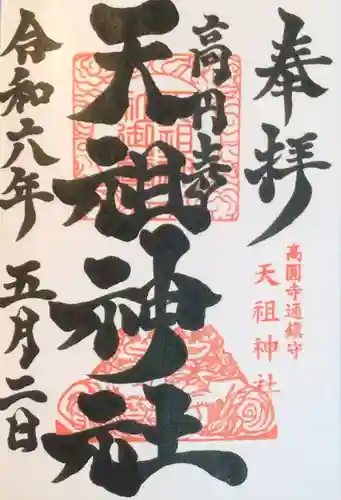 奉拝
高圓寺通鎮守
天祖神社
高円寺
天祖神社
令和六年 五月二日